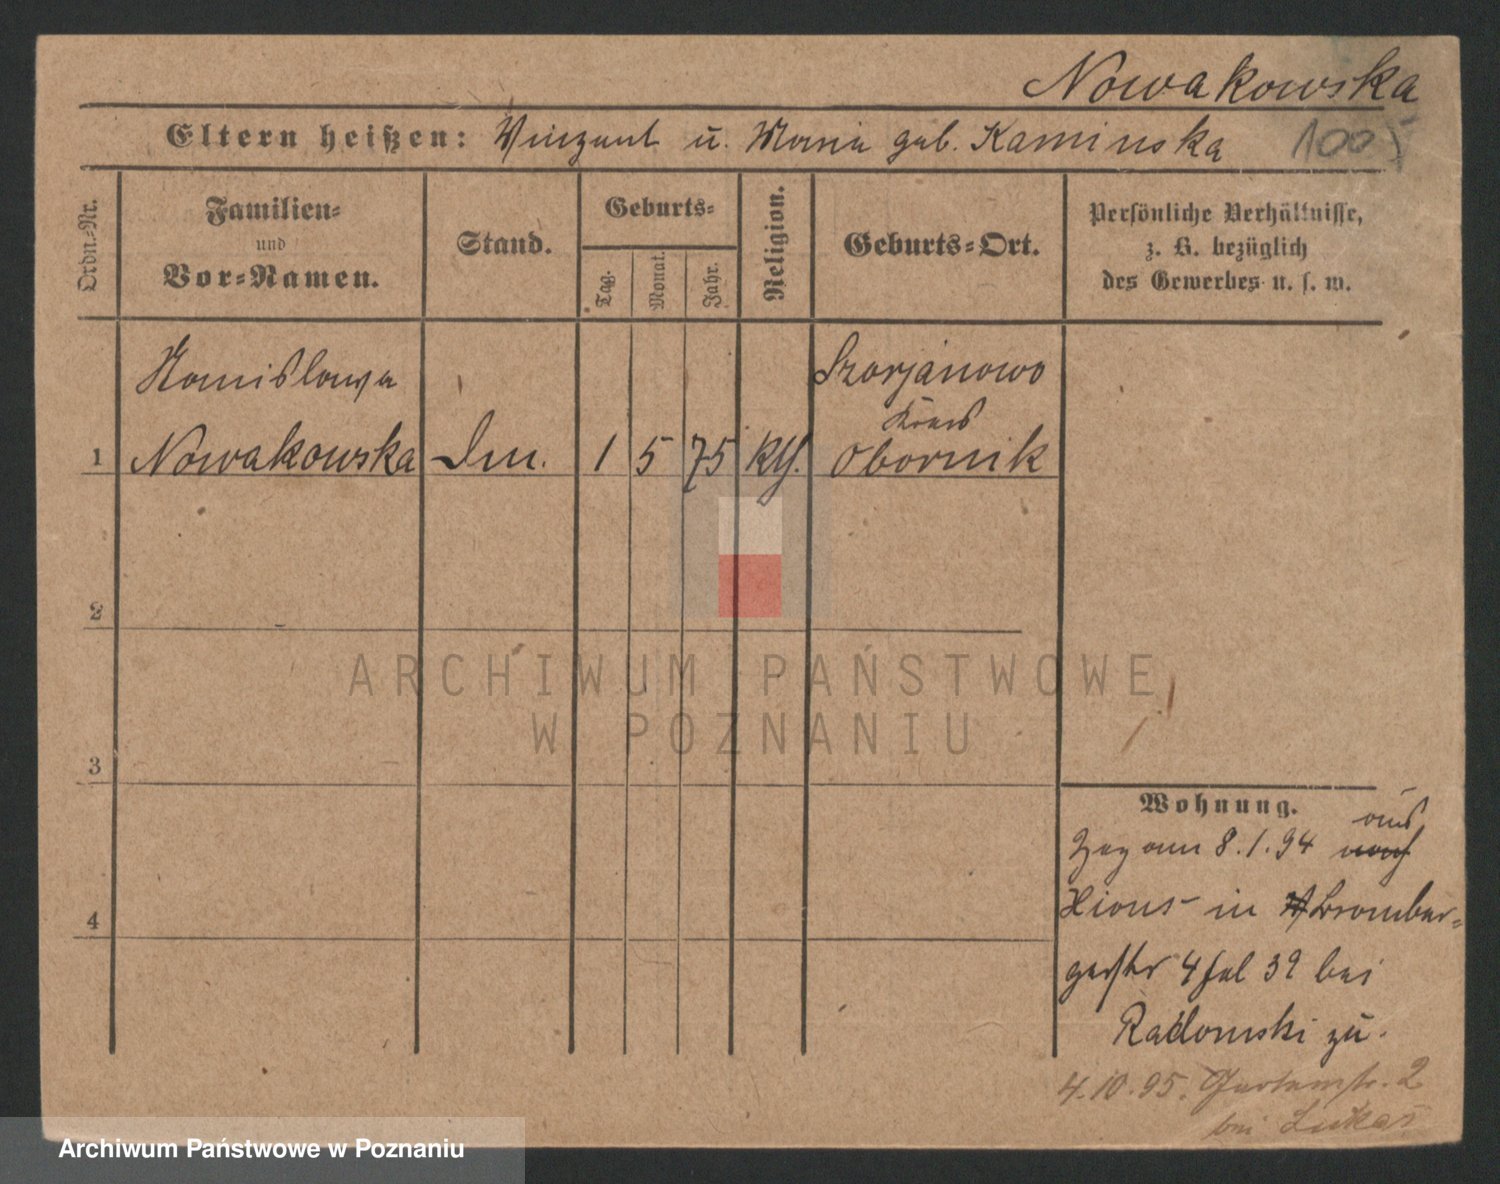 Nowakowska
Eltern heißen: Vinzent u. Maria geb. Kaminska 1005
Ordn.-Nr.
Familien-
und
Vor-Namen.
Stand.
Geburts-
Tag.
Monat.
Jahr.
Religion.
Geburts-Ort.
Persönliche Verhältnisse,
z. B. bezüglich
des Gewerbes u. s. w.
Stanislawa
Nowakowska
1
1 5 75 kth.
Kreis
Obornik
2
3
4
Wohnung.
aus
Zog am 8.1.94 nach
Xions in Bromber-
gerstr 4 bei
Radomski zu.
4.10.95. Gartenstr. 2
bei Lukas
ARCHIWUM PAŃSTWOWE
W POZNANIU
Archiwum Państwowe w Poznaniu